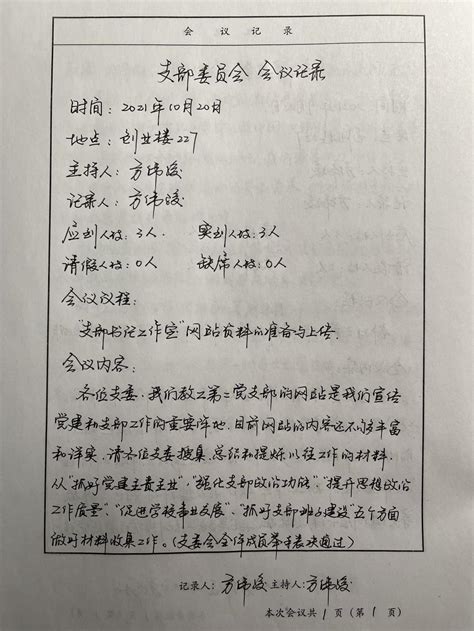 会议记录
支部委员会 会议记录
时间：2021年10月20日
地点：创业楼227
主持人：方伟
记录人：方伟
应到人数：3人 实到人数：3人
请假人数：0人 缺席人数：0人
会议议程：
"支部书记工作室"网站资料的准备与上传.
会议内容：
各位支委，我们教工第二党支部的网站是我们宣传
党建和支部工作的重要阵地，目前网站的内容还不够丰富
和详实，请各位支委搜集、总结和提炼以往工作的材料，
从"抓好党建主责主业"、"强化支部政治功能"、"提升思想政治
工作质量"、"促进学校事业发展"、"抓好支部班子建设"五个方面
做好材料收集工作。（支委会全体成员举手表决通过）
记录人：方伟 主持人：方伟
本次会议共1页（第1页）